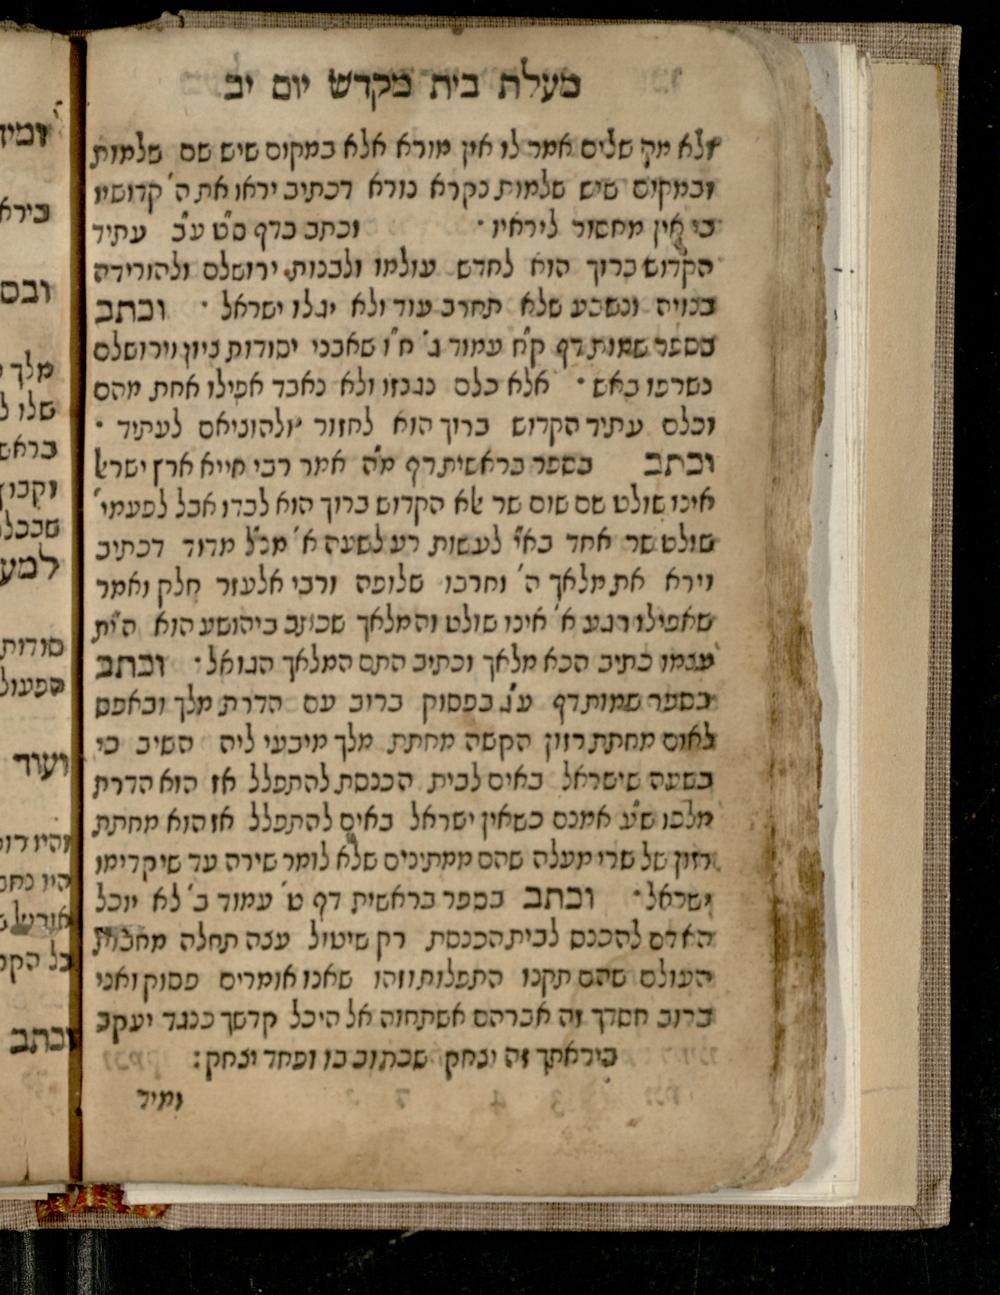 מעלת בית מקדש יום יב
ולא מק שלים אמר לו אין מורא אלא במקום שיש שם שלמות
ובמקום שיש שלמות נקרא נורא דכתיב יראו את ה' קדושיו
כי אין מחסור ליראיו · וכתב בדף ס"ט ע"ב עתיד
הקדוש ברוך הוא לחדש עולמו ולבנות ירושלם ולהורידה
בנויה ונשבע שלא תחרב עוד ולא יגלו ישראל · וכתב
בספר שמות דף ק"ח עמוד ג' ח"ו שאבני יסודות ציון וירושלם
נשרפו באש · אלא כלם נגנזו ולא נאבד אפילו אחת מהם
וכלם עתיד הקדוש ברוך הוא לחזור ולהוציאם לעתיד ·
וכתב בספר בראשית דף מ"ה אמר רבי חייא ארץ ישראל
אינו שולט שם שום שר אלא הקדוש ברוך הוא לבדו אבל לפעמי'
שולט שר אחד בא"י לעשות רע לשעה א' מכ"ל מדוד דכתיב
וירא את מלאך ה' וחרבו שלופה ורבי אלעזר חלק ואמר
שאפילו רגע א' אינו שולט והמלאך שכותב ביהושע הוא הי"ת
עצמו כתיב הכא מלאך וכתיב התם המלאך הגואל · וכתב
בספר שמות דף ע"ג בפסוק ברוב עם הדרת מלך ובאפס
לאום מחתת רזון הקשה מחתת מלך מיבעי ליה השיב כי
בשעה שישראל באים לבית הכנסת להתפלל אז הוא הדרת
מלכו ש"ע אמנם כשאין ישראל באים להתפלל אז הוא מחתת
רזון של שרי מעלה שהם ממתינים שלא לומר שירה עד שיקדימו
ישראל · וכתב בספר בראשית דף ט' עמוד ב' לא יוכל
האדם להכנס לבית הכנסת רק שיטול עצה תחלה מאבות
העולם שהם תקנו התפלות וזהו שאנו אומרים פסוק ואני
ברוב חסדך זה אברהם אשתחוה אל היכל קדשך כנגד יעקב
ביראתך זה יצחק שכתוב בו ופחד יצחק :
ומיד
ומיד
בירא
ובס
מלך
שלו
בראש
וקבוץ
שבכל
למע
סודות
הפעול
ועוד
והיו דומ
היו נחס
כל הקד
וכתב